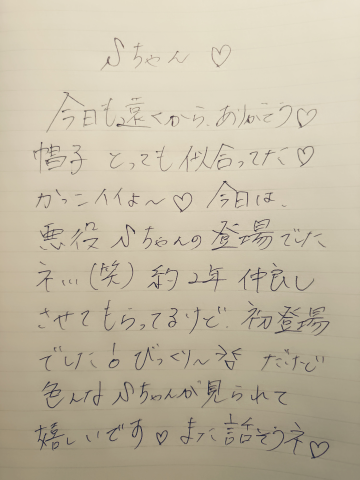 ♪ちゃん ♡
今日も遠くから、ありがとう♡
帽子 とっても 似合ってた♡
かっこイイよ〜♡ 今日は、
悪役 ♪ちゃんの登場でした
ネ...(笑) 約2年 仲良し
させてもらってるけど、初登場
でした!びっくり〜 だけど
色んな♪ちゃんが見られて
嬉しいです♡また話そうネ♡